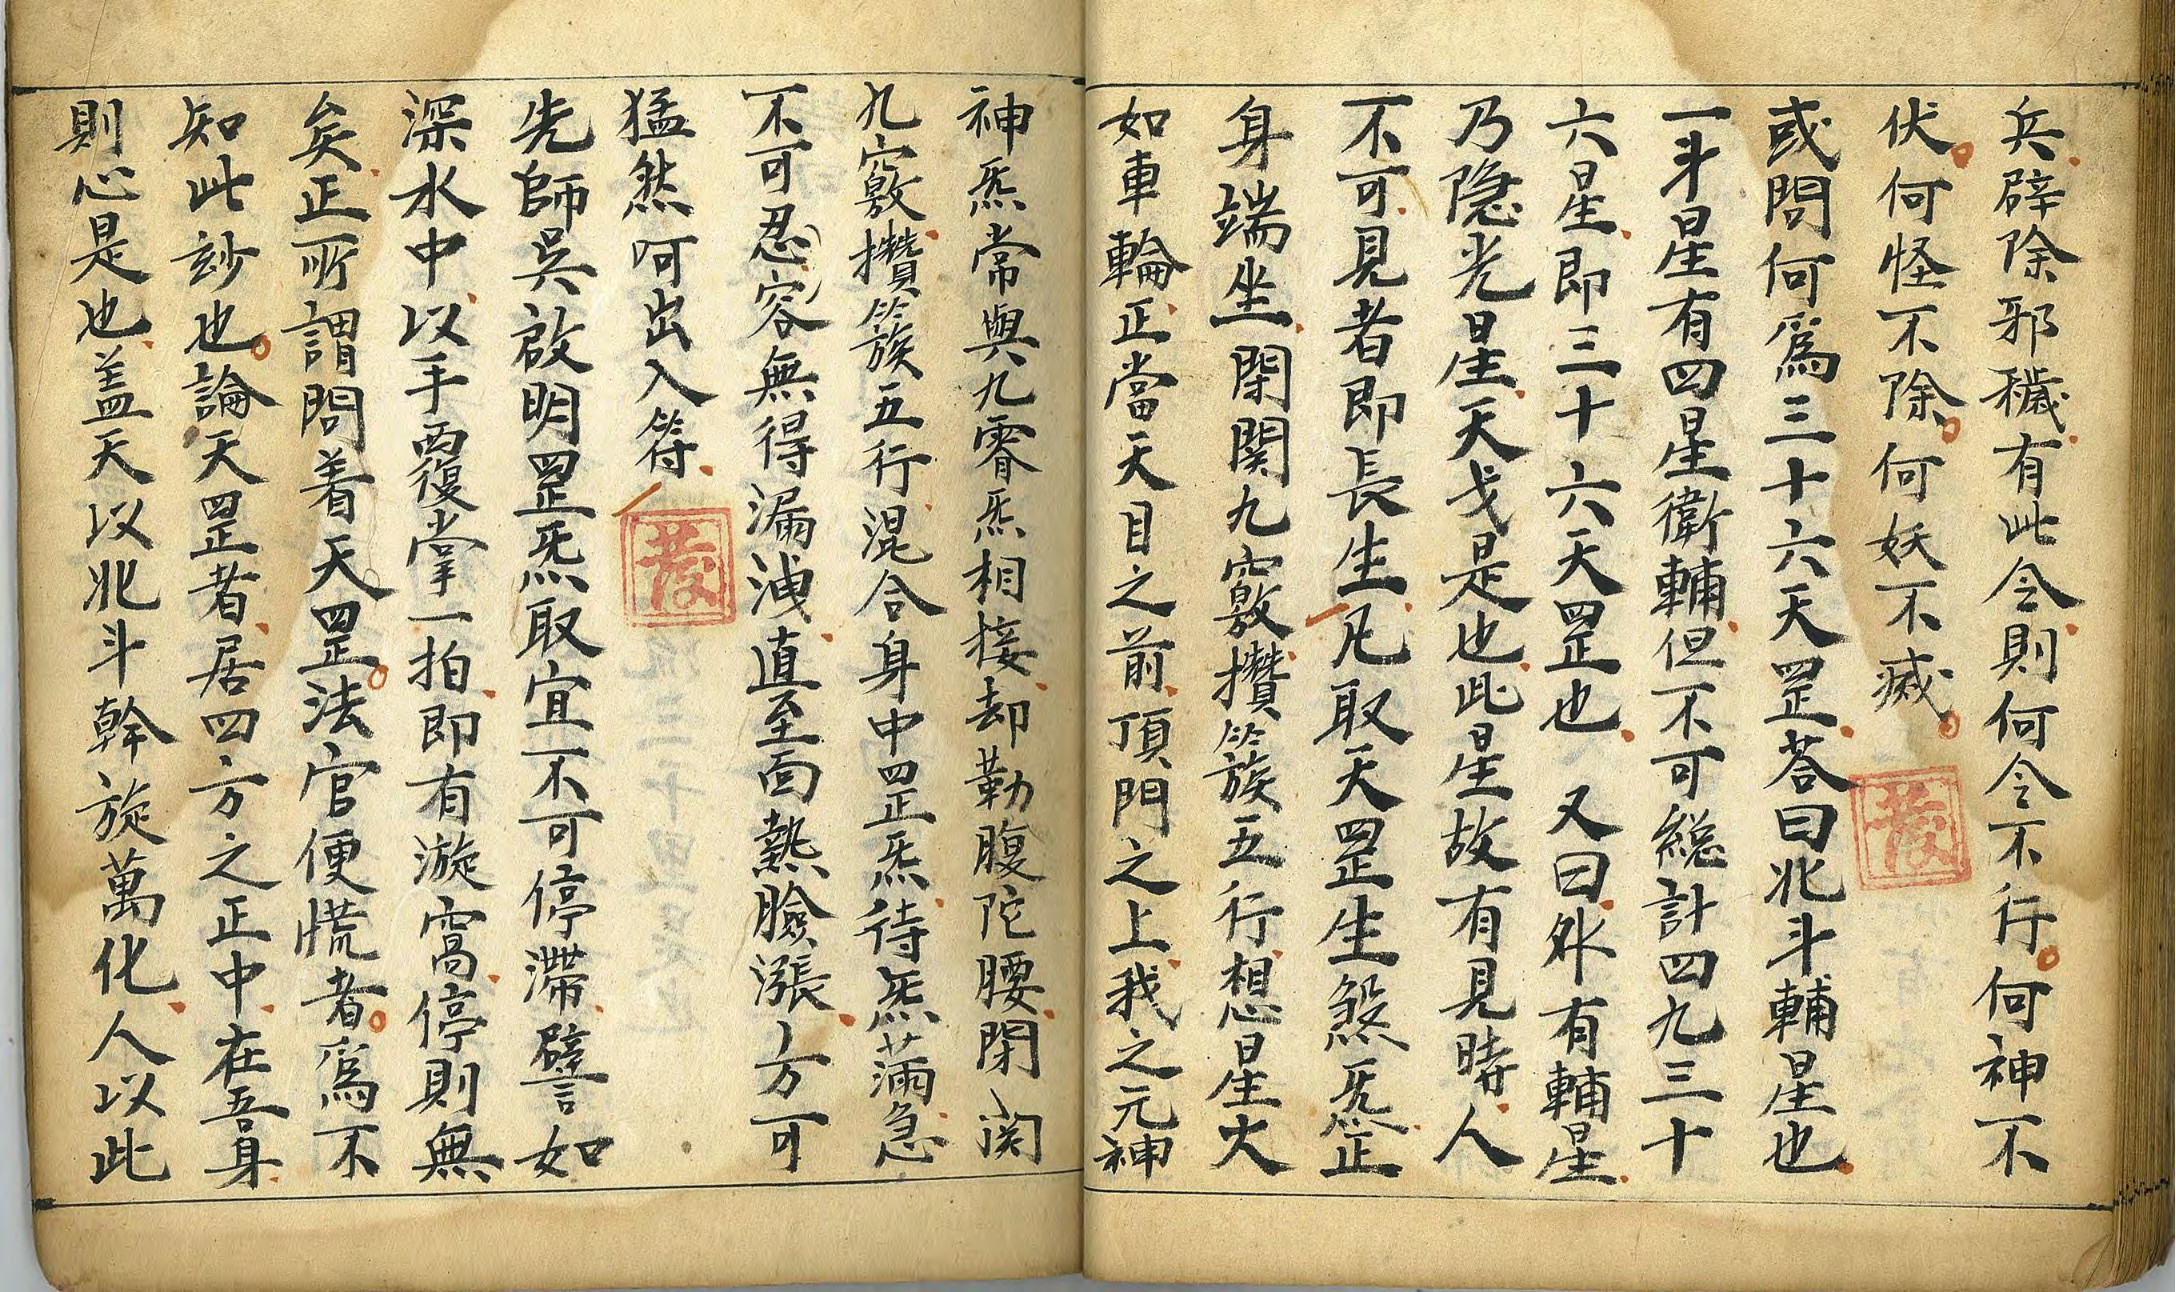 兵辟除邪穢有此令則何令不行何神不
伏何怪不除何妖不滅
發
或問何爲三十六天罡荅曰北斗輔星也
一斗星有四星衛輔但不可縂計四九三十
六星即三十六天罡也 又曰外有輔星
乃隐光星天戈是也此星故有見時人
不可見者即長生凡取天罡生煞炁正
身端坐閉関九竅攅簇五行想星大
如車輪正當天目之前頂門之上我之元神
神炁常與九霄炁相接却勒腹陀腰閉関
九竅攅簇五行混合身中罡炁待炁滿急
不可忍容無得漏洩直至面熱臉漲方可
猛然呵出入符
發
先師吳啟明罡炁取宜不可停滯譬如
深水中以手覆掌一拍即有漩窩停則無
矣正所謂問着天罡法官便慌者爲不
知此玅也論天罡者居四方之正中在吾身
則心是也盖天以北斗幹旋萬化人以此